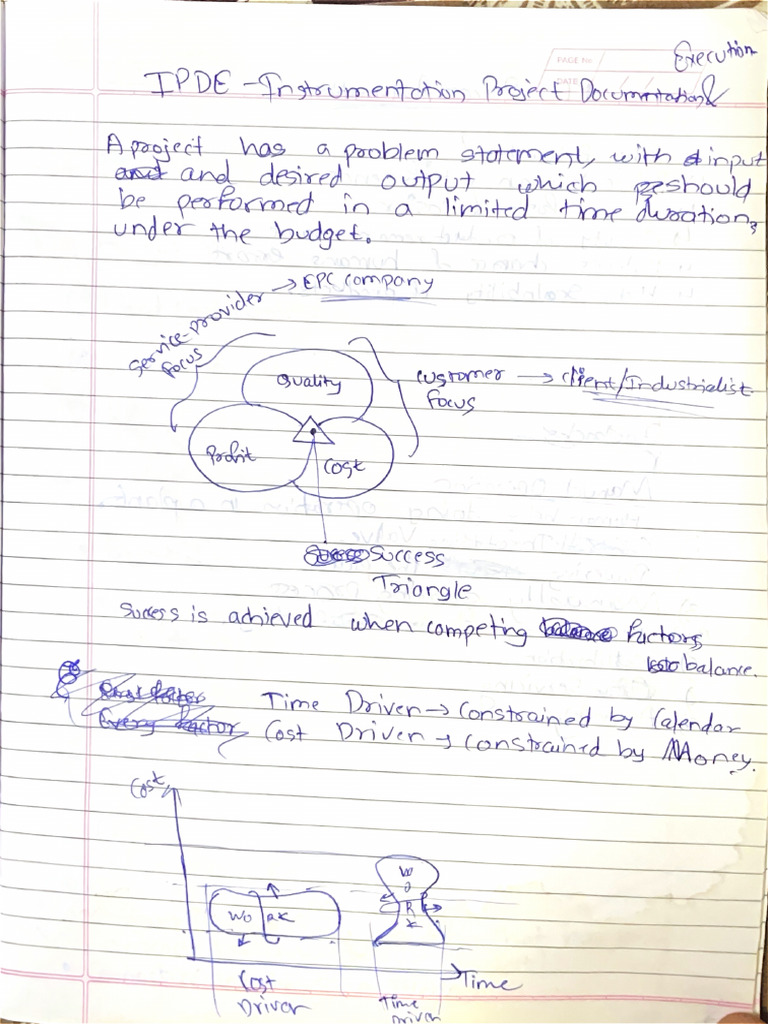 Execution
PAGE No.
DATE
IPDE - Instrumentation Project Documentation &
A project has a problem statement, with input
and and desired output which should
be performed in a limited time duration,
under the budget.
Service-provider focus → EPC company
Quality
Customer focus → client/Industrialist
Profit
Cost
Success
Triangle
Success is achieved when competing factors
balance.
Time Driven → Constrained by Calendar
Every factor Cost Driven → Constrained by Money.
Cost
WORK
WORK
Time
Cost
Driver
Time
Driver